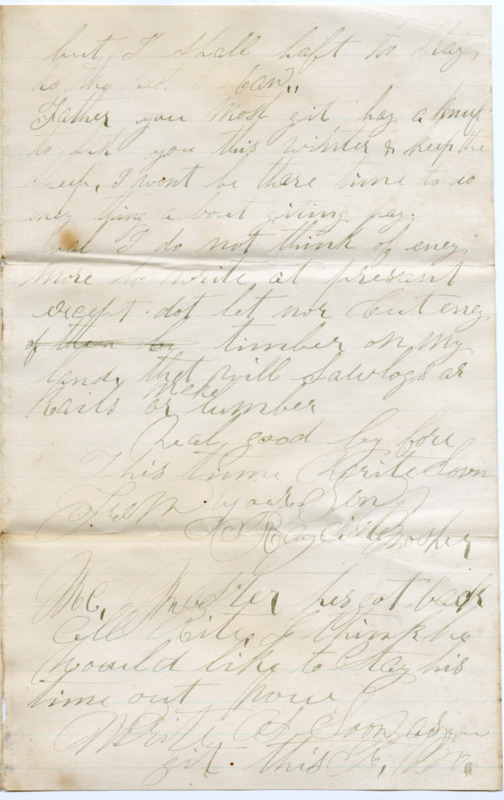 but I Shall haft to Stay
do the be can,,
Father you Most git hay a
to you this winter & keep the
Sheep, I wont be thare time to do
eney thing a bout giting hay.
Wal I do not think of eney
More to write at present
except dot let nor Cut eney
of timber on my
land, that will Sawlogs ar
Rails or make lumber
Weal good by for
This time Write Soon
From your Son
Mosher
Mc, has got back
All Rite, I think he
Would like to Stay his
time out now
Write Soon as you
git this